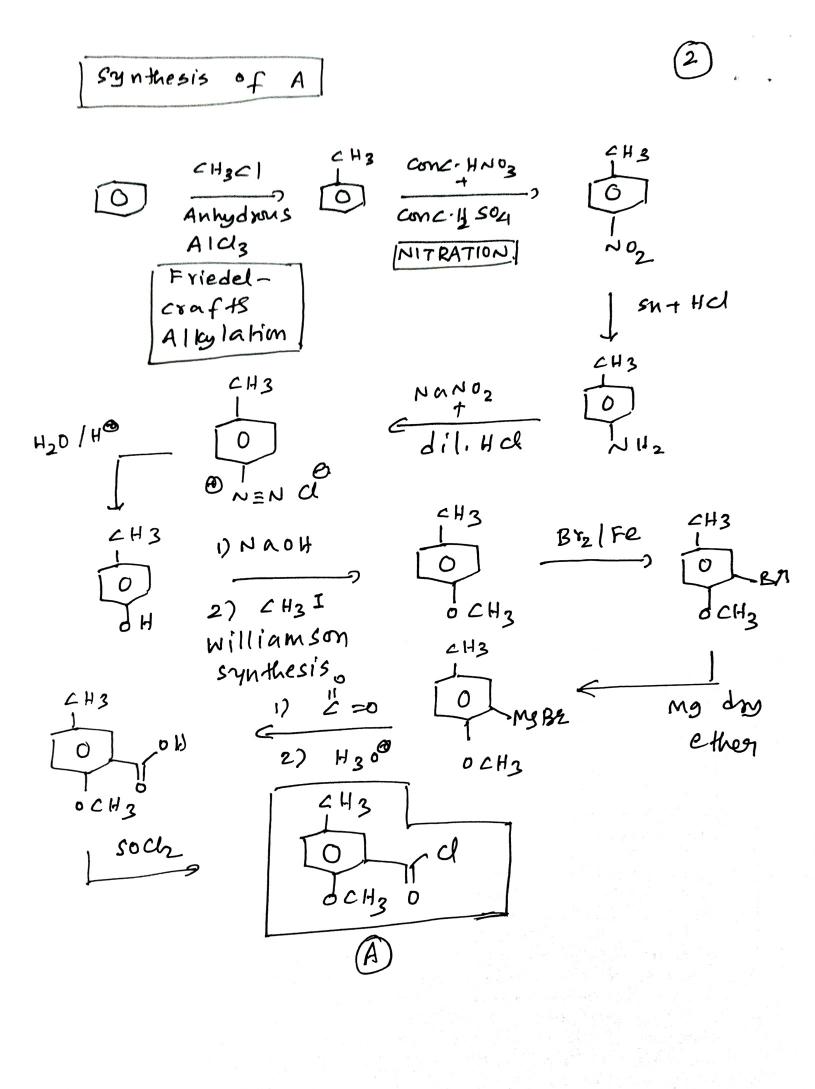 2
Synthesis of A
CH3Cl
Anhydrous
AlCl3
Friedel-
crafts
Alkylation
CH3
Conc. HNO3
+
Conc. H2SO4
NITRATION
CH3
NO2
Sn + HCl
CH3
NH2
NaNO2
+
dil. HCl
CH3
⊕ N≡N Cl ⊖
H2O / H⊕
CH3
OH
1) NaOH
2) CH3I
Williamson
synthesis
CH3
OCH3
Br2 / Fe
CH3
Br
OCH3
Mg dry
ether
CH3
MgBr
OCH3
O
1) C=O
2) H3O⊕
CH3
OH
O
OCH3
SOCl2
CH3
Cl
OCH3 O
A